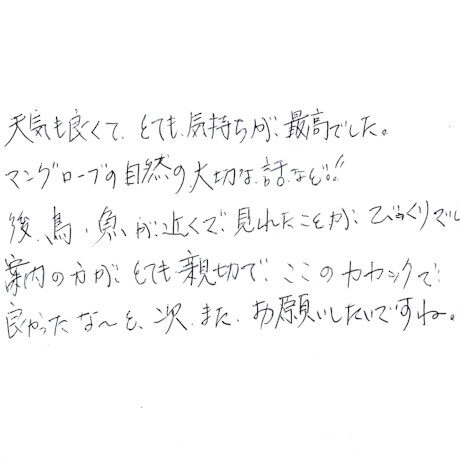 天気も良くて、とても気持ちが最高でした。
マングローブの自然の大切な話など!!
後、鳥、魚が近くで見れたことが、びっくりでし
案内の方が、とても親切で、ここのカヤックで
良かったな〜と、次、また、お願いしたいですね。